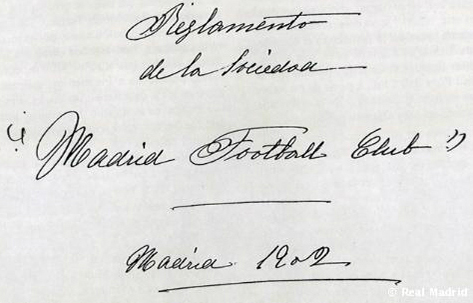 Reglamento
de la Sociedad
"Madrid Football Club"
Madrid 1902
© Real Madrid